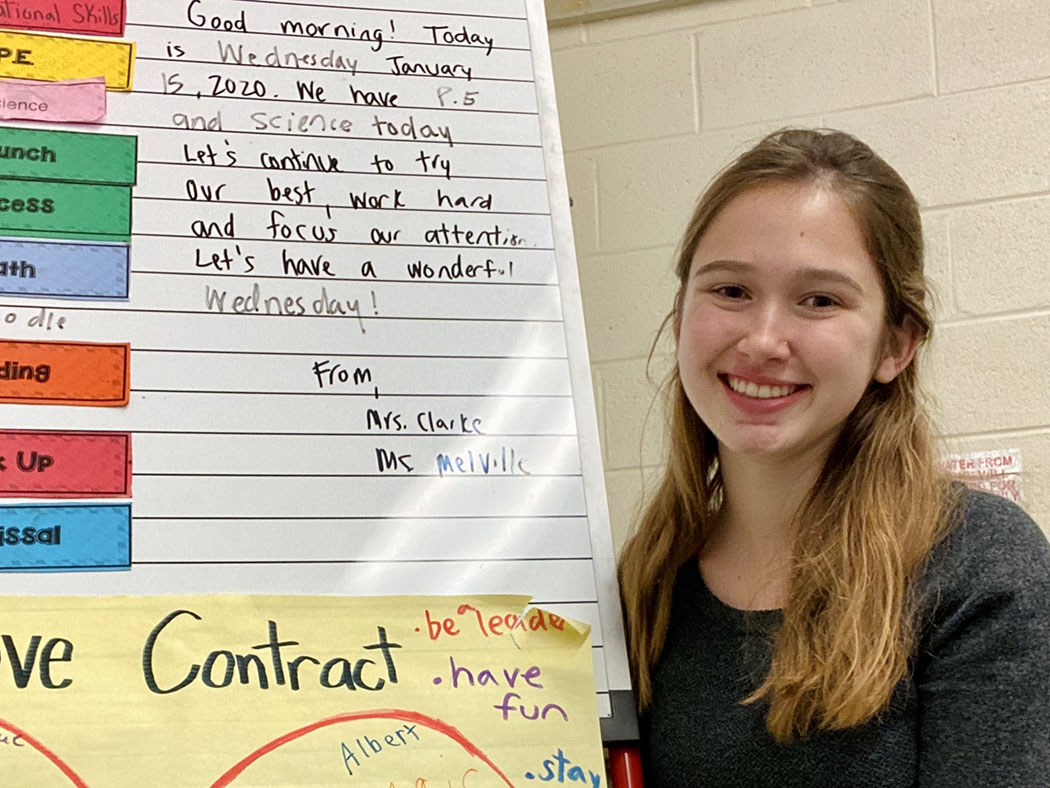 ational Skills
P.E.
cience
unch
cess
ath
odle
ding
k Up
issal
Good morning! Today
is Wednesday January
15, 2020. We have P.E
and science today
Let's continue to try
our best, work hard
and focus our attention.
Let's have a wonderful
Wednesday!
From,
Mrs. Clarke
Ms Melville
ove Contract
• be a leader
• have
fun
Albert
• stay
ATER FROM
WILL
FOR